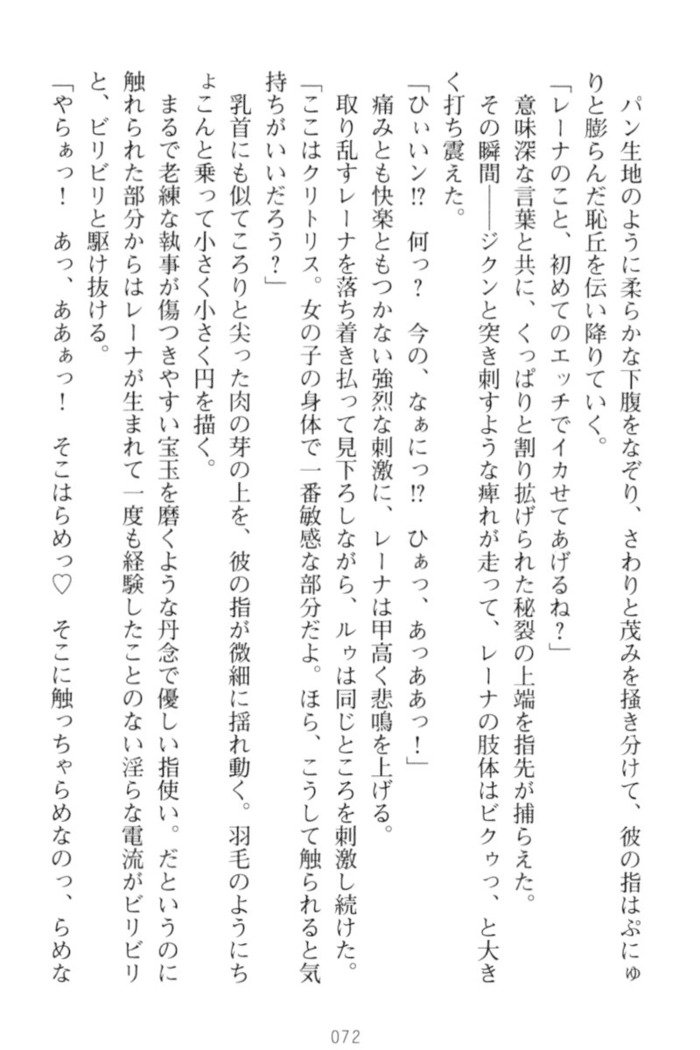 パン生地のように柔らかな下腹をなぞり、さわりと茂みを掻き分けて、彼の指はぷにゅ
りと膨らんだ恥丘を伝い降りていく。
「レーナのこと、初めてのエッチでイカせてあげるね？」
意味深な言葉と共に、くっぱりと割り拡げられた秘裂の上端を指先が捕らえた。
その瞬間――ジクンと突き刺すような痺れが走って、レーナの肢体はビクゥっ、と大き
く打ち震えた。
「ひぃいン!?　何っ？　今の、なぁにっ!?　ひぁっ、あっああっ！」
痛みとも快楽ともつかない強烈な刺激に、レーナは甲高く悲鳴を上げる。
取り乱すレーナを落ち着き払って見下ろしながら、ルゥは同じところを刺激し続けた。
「ここはクリトリス。女の子の身体で一番敏感な部分だよ。ほら、こうして触られると気
持ちがいいだろう？」
乳首にも似てころりと尖った肉の芽の上を、彼の指が微細に揺れ動く。羽毛のようにち
ょこんと乗って小さく小さく円を描く。
まるで老練な執事が傷つきやすい宝玉を磨くような丹念で優しい指使い。だというのに
触れられた部分からはレーナが生まれて一度も経験したことのない淫らな電流がビリビリ
と、ビリビリと駆け抜ける。
「やらぁっ！　あっ、ああぁっ！　そこはらめっ♡　そこに触っちゃらめなのっ、らめな
072